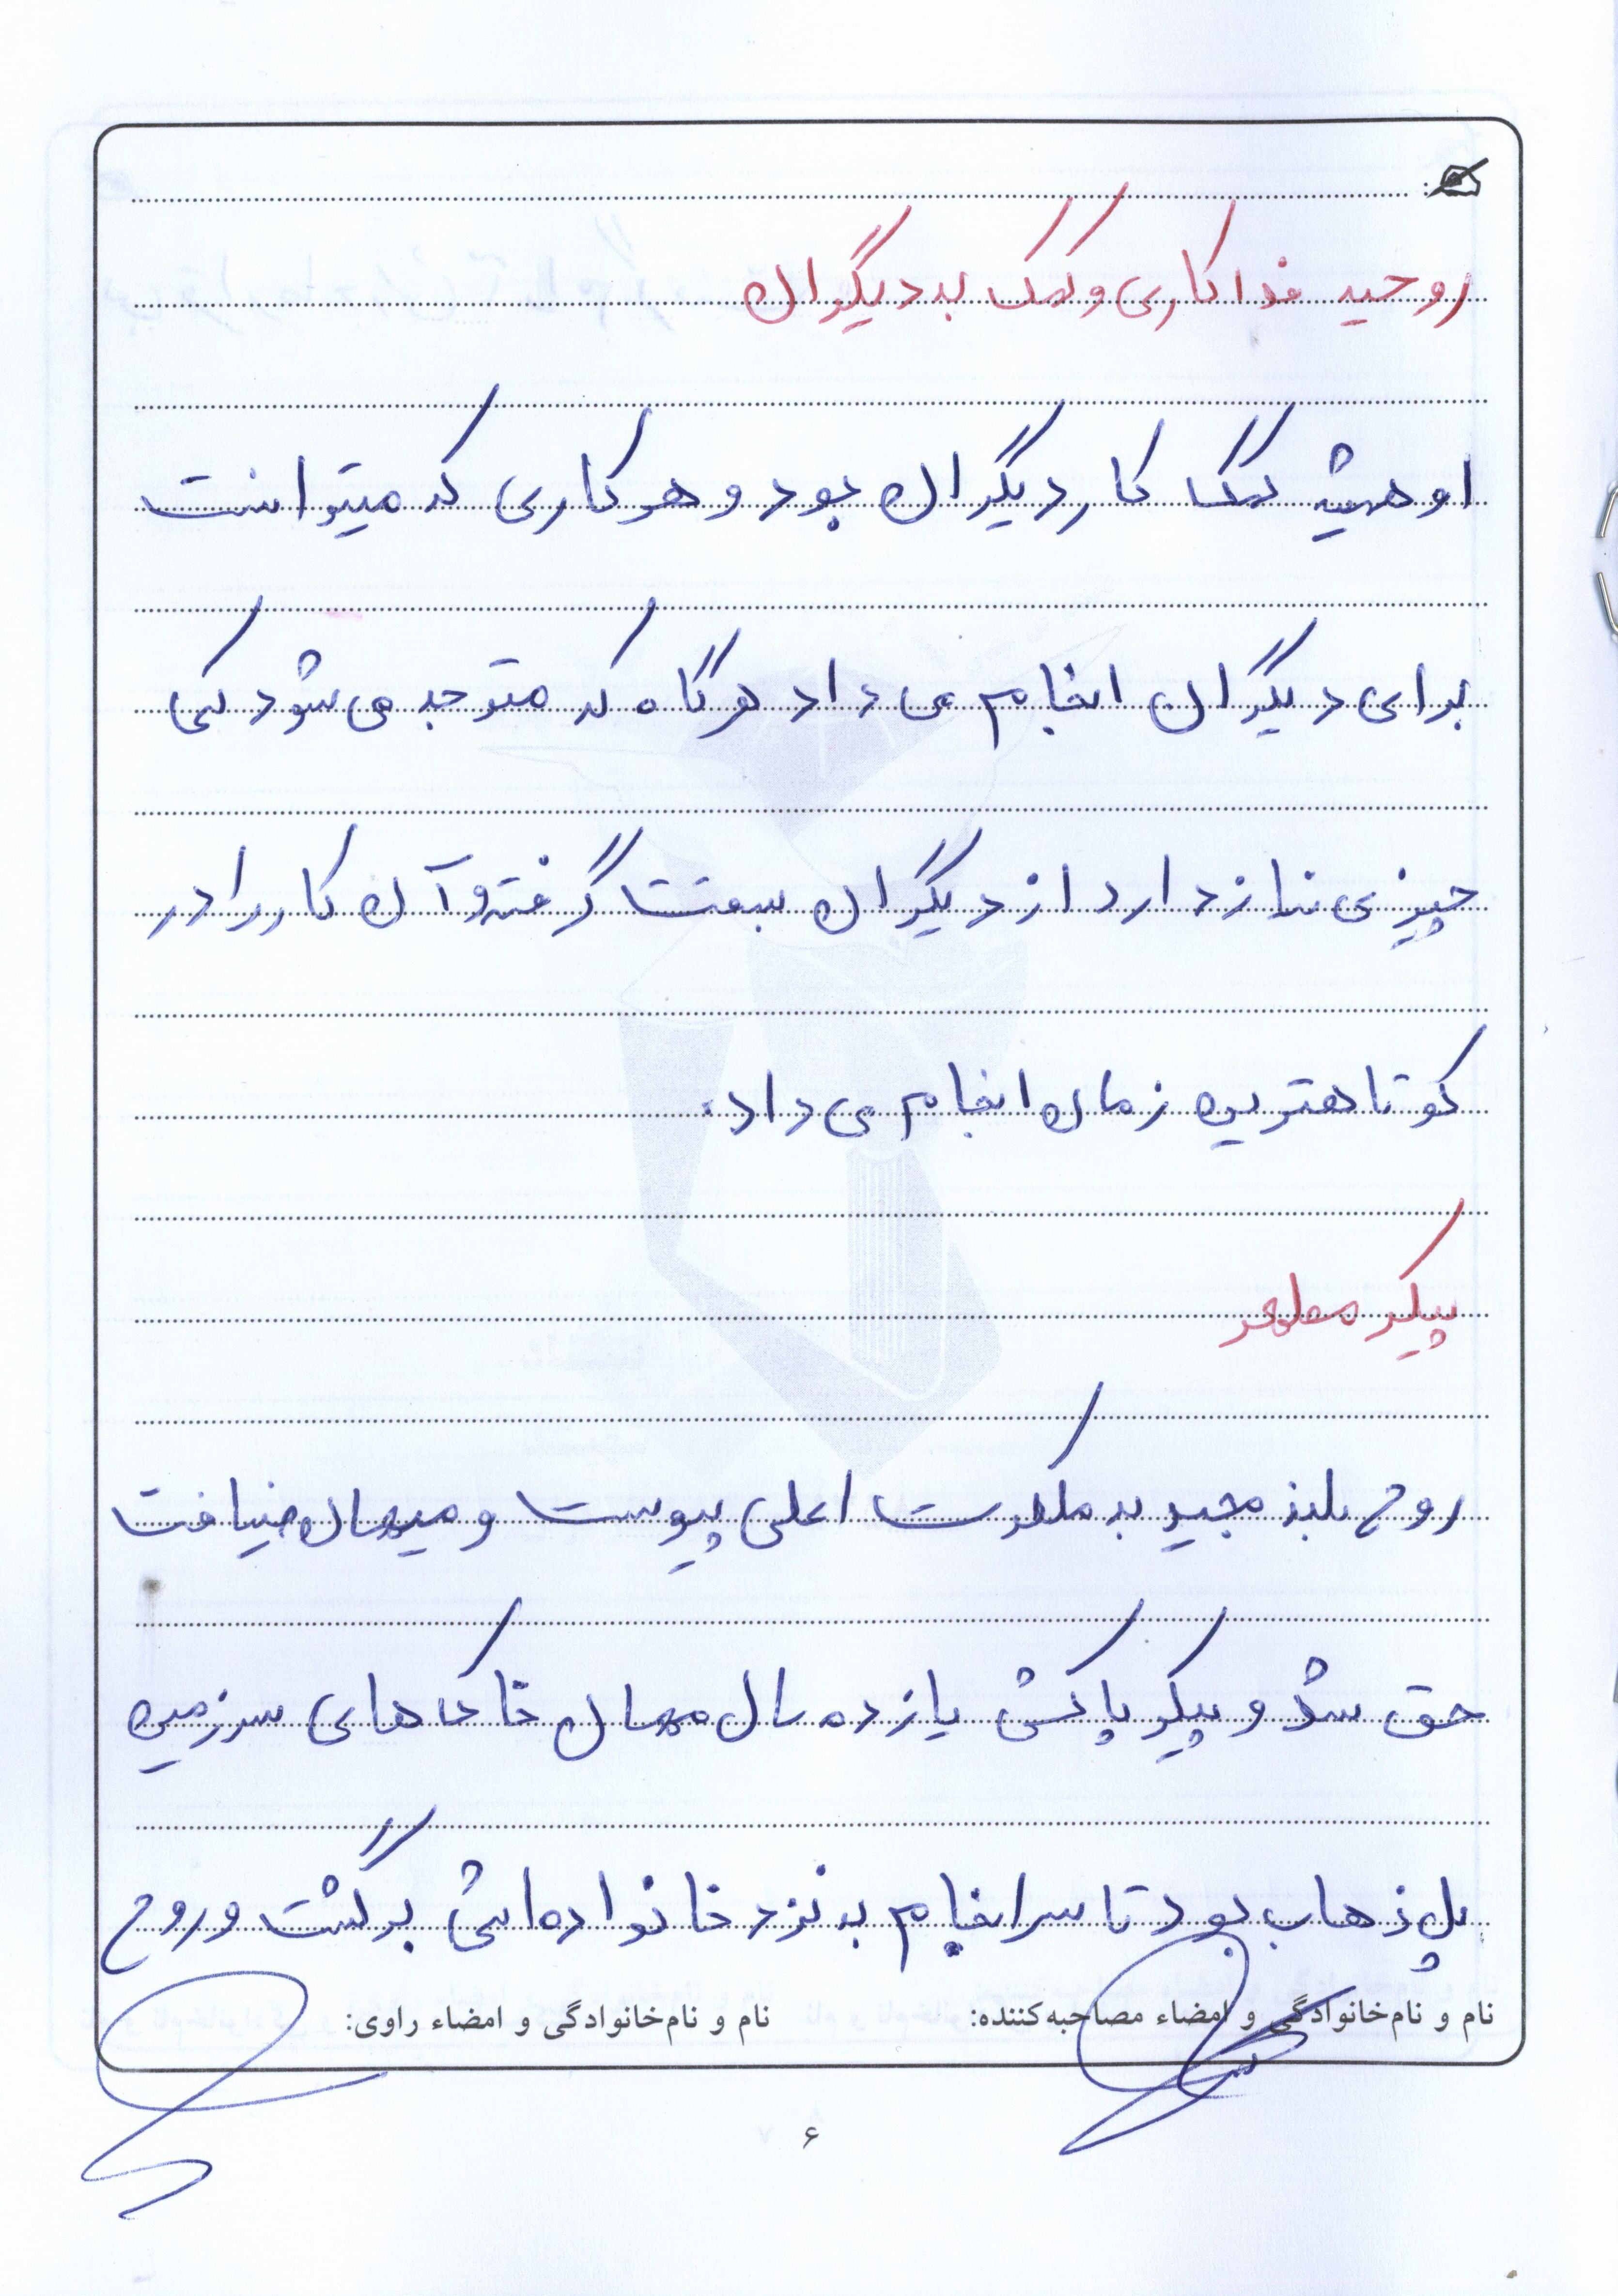 روحیه فداکاری و کمک به دیگران
او همیشه کمک کار دیگران بود و هر کاری که میتوانست
برای دیگران انجام می داد هرگاه که متوجه می شود کسی
چیزی نیاز دارد از دیگران سبقت گرفته و آن کار را در
کوتاهترین زمان انجام می داد.
پیکر مطهر
روح بلند مجید به ملکوت اعلی پیوست و میهمان ضیافت
حق شد و پیکر پاکش یازده سال مهمان خاک های سرزمین
پل ذهاب بود تا سرانجام به نزد خانواده اش برگشت و روح
نام و نام‌خانوادگی و امضاء مصاحبه‌کننده: نام و نام‌خانوادگی و امضاء راوی:
۶